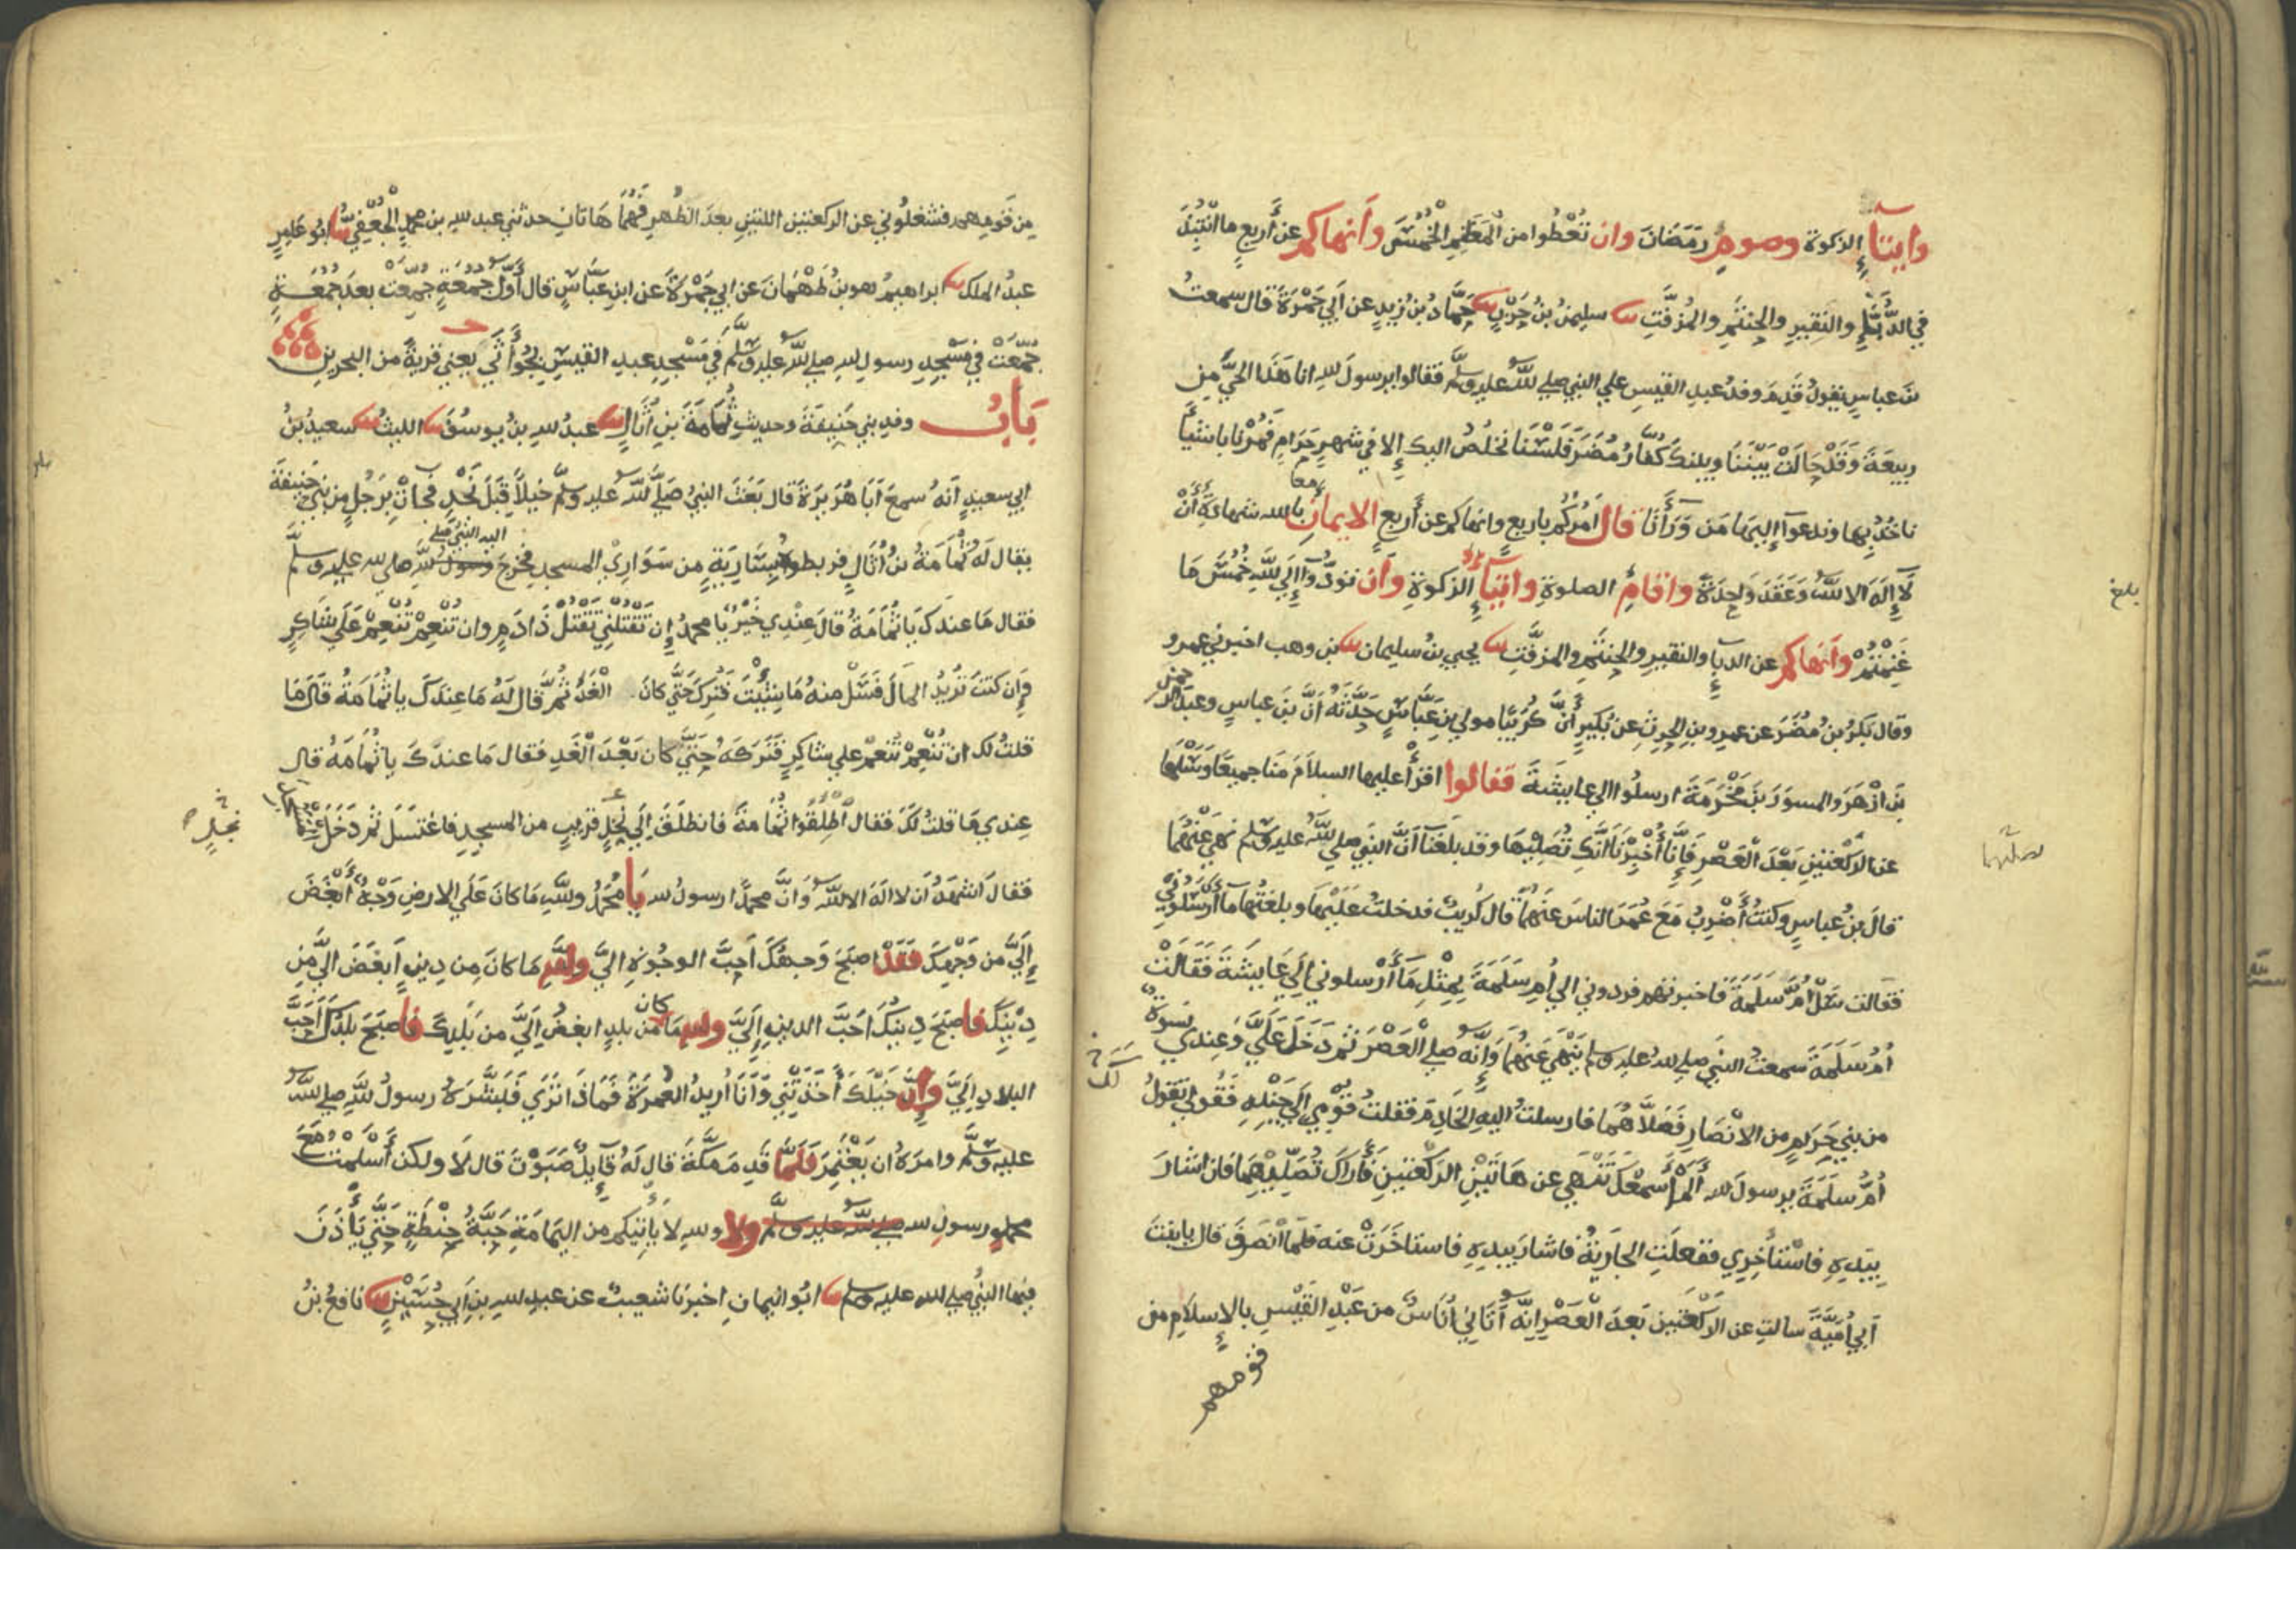 وايتاء الزكوة وصوم رمضان وان تعطوا من المغنم الخمس وانهاكم عن أربع ما انتبذ
في الدباء والنقير والحنتم والمزفت ثنا سليمن بن حرب ثنا حماد بن زيد عن أبي جمرة قال سمعت
بن عباس يقول قدم وفد عبد القيس علي النبي صلي الله عليه وسلم فقالوا يرسول لله انا هذا الحي من
ربيعة وقد حالت بيننا وبينك كفار مضر فلسنا نخلص اليك إلا في شهر حرام فمرنا باشيأ
ناخذ بها وندعوا إليها من وراأنا قال امركم باربع وانهاكم عن أربع الايمان بالله شهادة أن
لا إله الا الله وعقد واحدة واقام الصلوة وايتاء الزكوة وأن تودوا إلي لله خمس ما
غنمتم وأنهاكم عن الدباء والنقير والحنتم والمزفت ثنا يحيي بن سليمان ثنا بن وهب اخبرني عمرو
وقال بكر بن مضر عن عمرو بن الحرث عن بكير أن كريبا مولي بن عباس حدثه أن بن عباس وعبد الرحمن
بن ازهر والمسور بن مخرمة ارسلوا الي عايشة فقالوا اقرأ عليها السلام منا جميعا وسلها
عن الركعتين بعد العصر فإنا أخبرنا أنك تصليها وقد بلغنا أن النبي صلي لله عليه وسلم نهي عنهما
صليهما
قال بن عباس وكنت أضرب مع عمر الناس عنهما قال كريب فدخلت عليها وبلغتها ما أرسلوني
فقالت سل أم سلمة فاخبرتهم فردوني الي أم سلمة بمثل ما أرسلوني إلي عايشة فقالت
أم سلمة سمعت النبي صلي لله عليه وسلم ينهي عنهما وإنه صلي العصر ثم دخل علي وعندي نسوة
من بني حرام من الانصار فصلاهما فارسلت اليه الخادم فقلت قومي إلي جنبه فقولي تقول
أم سلمة يرسول لله ألم أسمعك تنهي عن هاتين الركعتين فأراك تصليهما فان اشار
بيده فاستأخري ففعلت الجارية فاشار بيده فاستاخرت عنه فلما انصرف قال يابنت
أبي أمية سالت عن الركعتين بعد العصر إنه أتاني أناس من عبد القيس بالإسلام من
قومهم
بلغ
من قومهم فشغلوني عن الركعتين اللتين بعد الظهر فهما هاتان حدثني عبد لله بن محمد الجعفي ثنا ابو عامر
عبد الملك ثنا ابراهيم هو بن طهمان عن ابي جمرة عن ابن عباس قال أول جمعة جمعت بعد جمعة
جمعت في مسجد رسول لله صلي لله عليه وسلم في مسجد عبد القيس بجوأثي يعني قرية من البحرين
باب وفد بني حنيفة وحديث ثمامة بن أثال ثنا عبد لله بن يوسف ثنا الليث ثنا سعيد بن
ابي سعيد أنه سمع أبا هريرة قال بعث النبي صلي لله عليه وسلم خيلا قبل نجد فجات برجل من بني حنيفة
يقال له ثمامة بن أثال فربطوه بسارية من سواري المسجد فخرج اليه النبي صلي رسول لله صلي لله عليه وسلم
فقال ما عندك يا ثمامة قال عندي خير يا محمد إن تقتلني تقتل ذا دم وان تنعم تنعم علي شاكر
وإن كنت تريد المال فسل منه ما شيت فترك حتي كان الغد ثم قال له ما عندك يا ثمامة قال ما
قلت لك ان تنعم تنعم علي شاكر فتركه حتي كان بعد الغد فقال ما عندك يا ثمامة قال
عندي ما قلت لك فقال اطلقوا ثمامة فانطلق إلي نخل قريب من المسجد فاغتسل ثم دخل المسجد
نجل
فقال اشهد أن لا اله الا لله وأن محمدا رسول لله يا محمد ولله ما كان علي الارض وجه أبغض
إلي من وجهك فقد اصبح وجهك أحب الوجوه الي ولله ما كان من دين أبغض الي من
دينك فاصبح دينك احب الدين إلي ولله ما كان من بلد ابغض إلي من بلدك فاصبح بلدك أحب
البلاد إلي وإن خيلك أخذتني وأنا أريد العمرة فماذا تري فبشره رسول لله صلي لله
عليه وسلم وامره ان يعتمر فلما قدم مكة قال له قايل صبوت قال لا ولكن أسلمت مع
محمد رسول لله صلي لله عليه وسلم ولا ولله لا يأتيكم من اليمامة حبة حنطة حتي يأذن
فيها النبي صلي لله عليه وسلم ثنا ابو اليمان اخبرنا شعيب عن عبد لله بن أبي حسين ثنا نافع بن